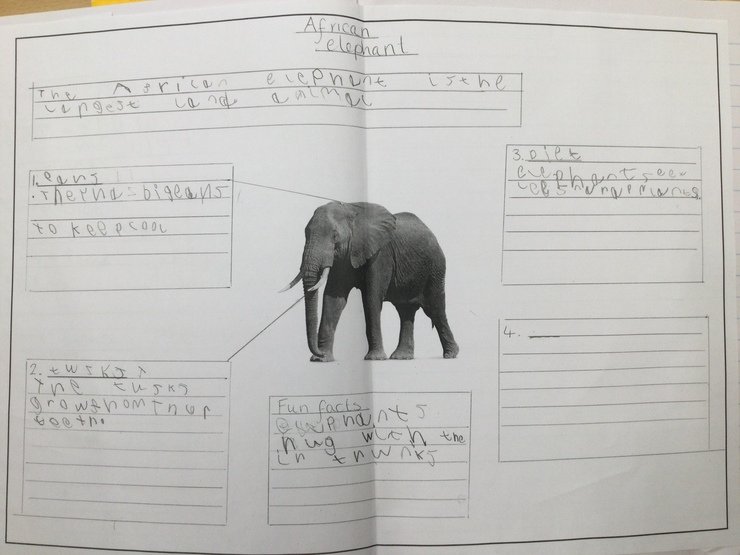 African
elephant
The African elephant is the
largest land animal
1. ears
They has big ears
to keep cool
2. tusks
the tusks
grow from thur
teeth.
3. Diet
elephants eet
plants.
4.
Fun facts
elephants
hug with the
ir trunks